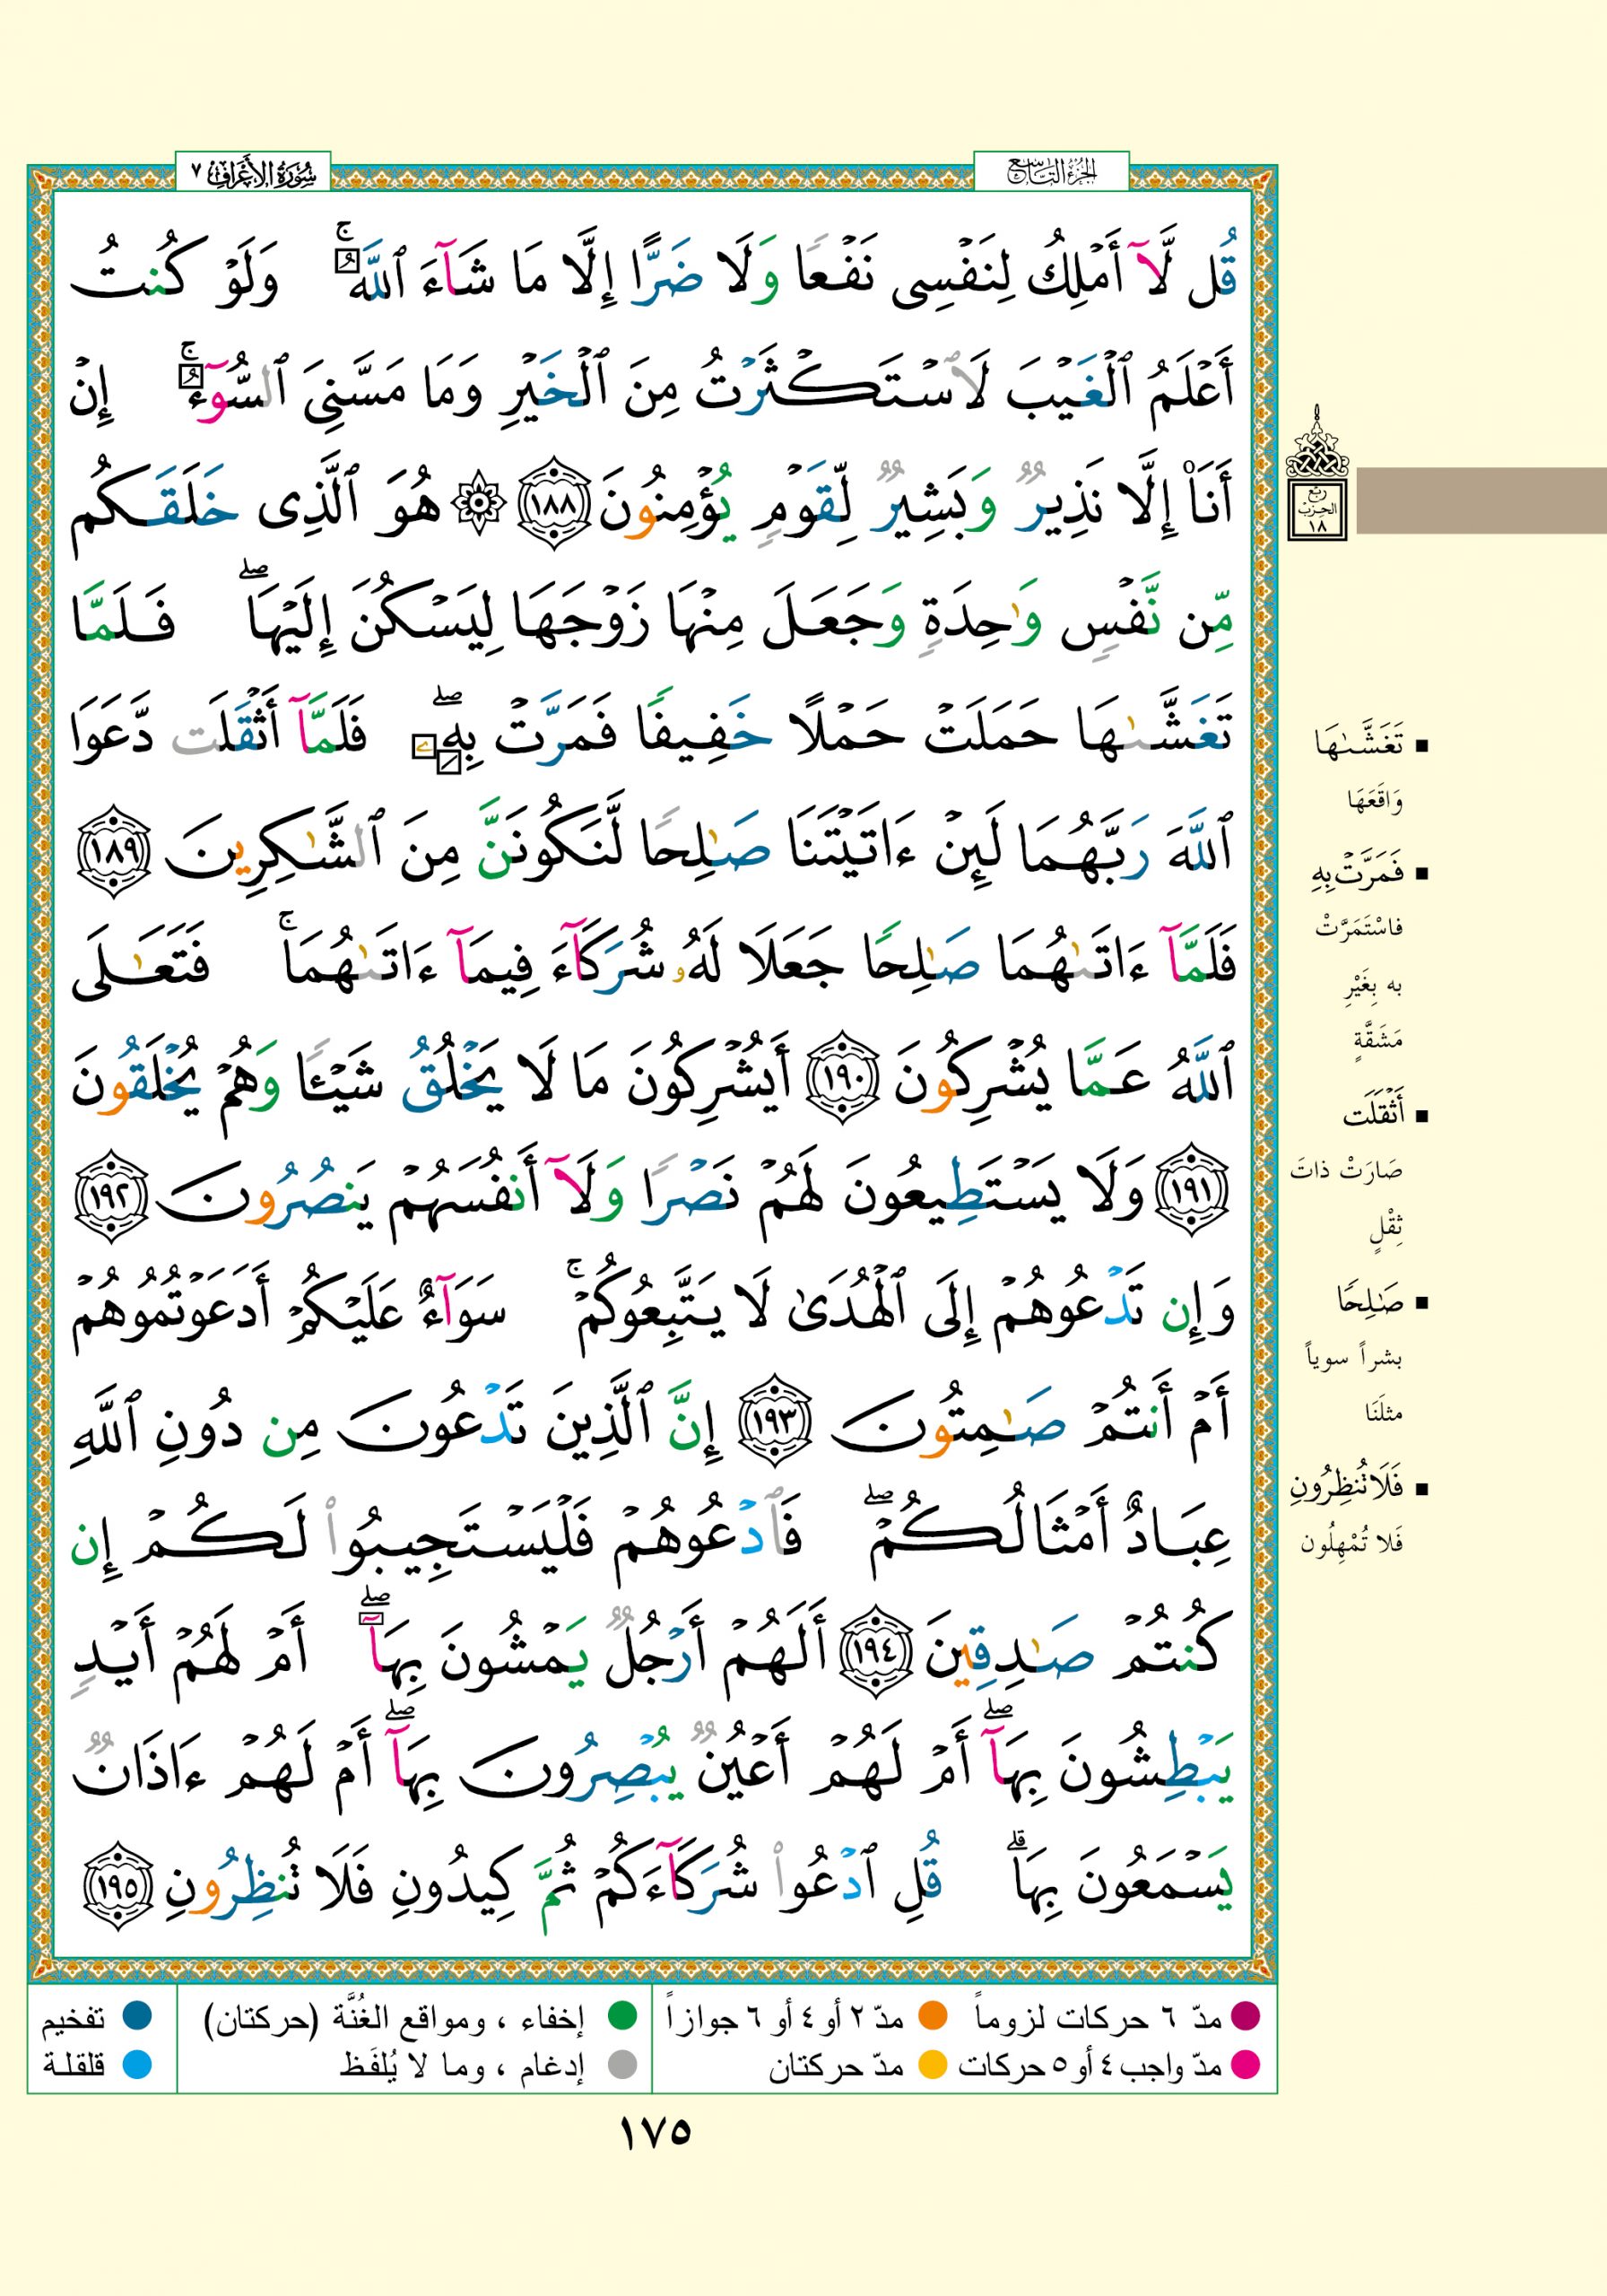 الجزء التاسع
سورة الأعراف ٧
قُل لَّآ أَمْلِكُ لِنَفْسِى نَفْعًا وَلَا ضَرًّا إِلَّا مَا شَآءَ ٱللَّهُ ۚ وَلَوْ كُنتُ
أَعْلَمُ ٱلْغَيْبَ لَٱسْتَكْثَرْتُ مِنَ ٱلْخَيْرِ وَمَا مَسَّنِىَ ٱلسُّوٓءُ ۚ إِنْ
أَنَا۠ إِلَّا نَذِيرٌ وَبَشِيرٌ لِّقَوْمٍ يُؤْمِنُونَ ١٨٨ ۞ هُوَ ٱلَّذِى خَلَقَكُم
مِّن نَّفْسٍ وَٰحِدَةٍ وَجَعَلَ مِنْهَا زَوْجَهَا لِيَسْكُنَ إِلَيْهَا ۖ فَلَمَّا
تَغَشَّىٰهَا حَمَلَتْ حَمْلًا خَفِيفًا فَمَرَّتْ بِهِۦ ۖ فَلَمَّآ أَثْقَلَت دَّعَوَا
ٱللَّهَ رَبَّهُمَا لَئِنْ ءَاتَيْتَنَا صَٰلِحًا لَّنَكُونَنَّ مِنَ ٱلشَّٰكِرِينَ ١٨٩
فَلَمَّآ ءَاتَىٰهُمَا صَٰلِحًا جَعَلَا لَهُۥ شُرَكَآءَ فِيمَآ ءَاتَىٰهُمَا ۚ فَتَعَٰلَى
ٱللَّهُ عَمَّا يُشْرِكُونَ ١٩٠ أَيُشْرِكُونَ مَا لَا يَخْلُقُ شَيْـًٔا وَهُمْ يُخْلَقُونَ
١٩١ وَلَا يَسْتَطِيعُونَ لَهُمْ نَصْرًا وَلَآ أَنفُسَهُمْ يَنصُرُونَ ١٩٢
وَإِن تَدْعُوهُمْ إِلَى ٱلْهُدَىٰ لَا يَتَّبِعُوكُمْ ۚ سَوَآءٌ عَلَيْكُمْ أَدَعَوْتُمُوهُمْ
أَمْ أَنتُمْ صَٰمِتُونَ ١٩٣ إِنَّ ٱلَّذِينَ تَدْعُونَ مِن دُونِ ٱللَّهِ
عِبَادٌ أَمْثَالُكُمْ ۖ فَٱدْعُوهُمْ فَلْيَسْتَجِيبُوا۟ لَكُمْ إِن
كُنتُمْ صَٰدِقِينَ ١٩٤ أَلَهُمْ أَرْجُلٌ يَمْشُونَ بِهَآ ۖ أَمْ لَهُمْ أَيْدٍ
يَبْطِشُونَ بِهَآ ۖ أَمْ لَهُمْ أَعْيُنٌ يُبْصِرُونَ بِهَآ ۖ أَمْ لَهُمْ ءَاذَانٌ
يَسْمَعُونَ بِهَا ۗ قُلِ ٱدْعُوا۟ شُرَكَآءَكُمْ ثُمَّ كِيدُونِ فَلَا تُنظِرُونِ ١٩٥
ربع
الحزب
١٨
▪ تَغَشَّىٰهَا
وَاقَعَهَا
▪ فَمَرَّتْ بِهِ
فاسْتَمَرَّتْ
به بِغَيْرِ
مَشَقَّةٍ
▪ أَثْقَلَت
صَارَتْ ذاتَ
ثِقْلٍ
▪ صَٰلِحًا
بشراً سوياً
مثلَنَا
▪ فَلَا تُنظِرُونِ
فَلا تُمْهِلُون
مدّ ٦ حركات لزوماً مدّ ٢ أو ٤ أو ٦ جوازاً إخفاء ، ومواقع الغُنَّة (حركتان) تفخيم
مدّ واجب ٤ أو ٥ حركات مدّ حركتان إدغام ، وما لا يُلفَظ قلقلة
١٧٥